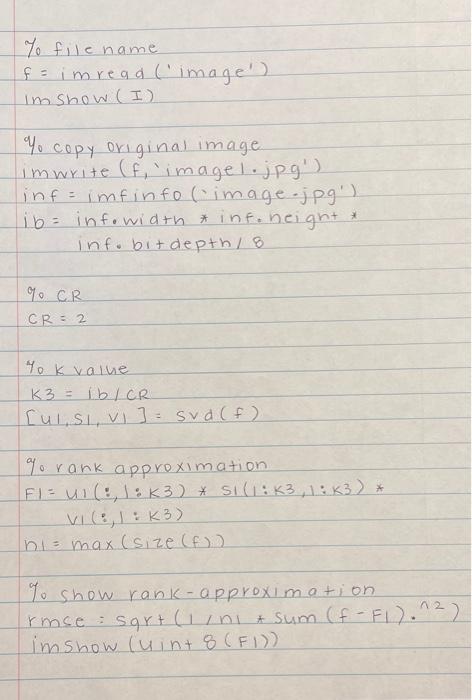 % file name
f = imread ('image')
imshow (I)
% copy original image
imwrite (f, 'image1.jpg')
inf = imfinfo ('image.jpg')
ib = inf.width * inf.height *
inf.bitdepth / 8
% CR
CR = 2
% k value
K3 = ib / CR
[U1, S1, V1] = svd(f)
% rank approximation
F1 = U1(:,1:K3) * S1(1:K3,1:K3) *
V1(:,1:K3)
n1 = max(size(f))
% show rank-approximation
rmse = sqrt(1/n1 * sum(f-F1).^2)
imshow (uint8(F1))